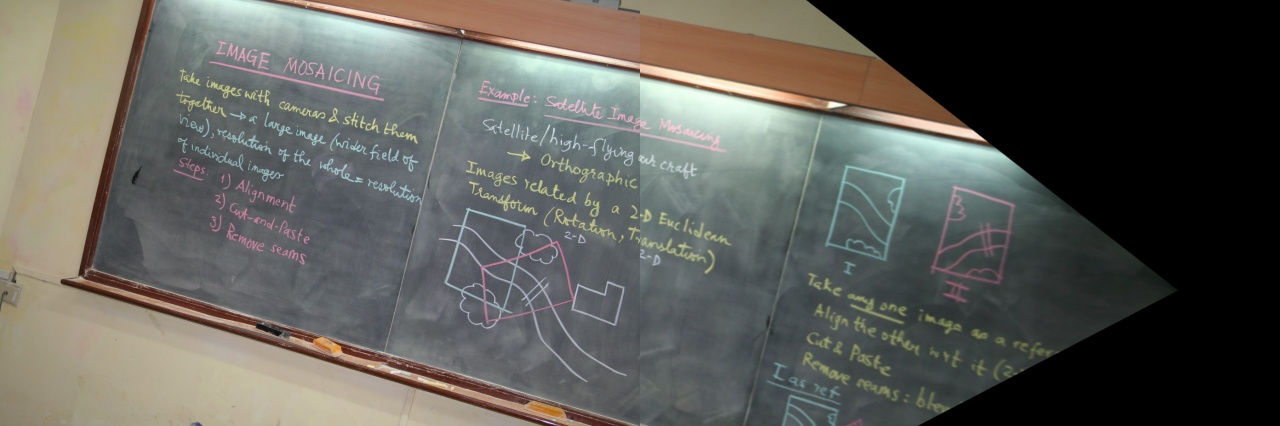 IMAGE MOSAICING
Take images with cameras & stitch them
together → a large image (wider field of
view), resolution of the whole = resolution
of individual images
Steps: 1) Alignment
2) Cut-and-Paste
3) Remove seams
Example: Satellite Image Mosaicing
Satellite/high-flying air craft
→ Orthographic
Images related by a 2-D Euclidean
Transform (Rotation, Translation)
2-D 2-D
I II
Take any one image as a refer
Align the other wrt it (2-
Cut & Paste
Remove seams: ble
I as ref